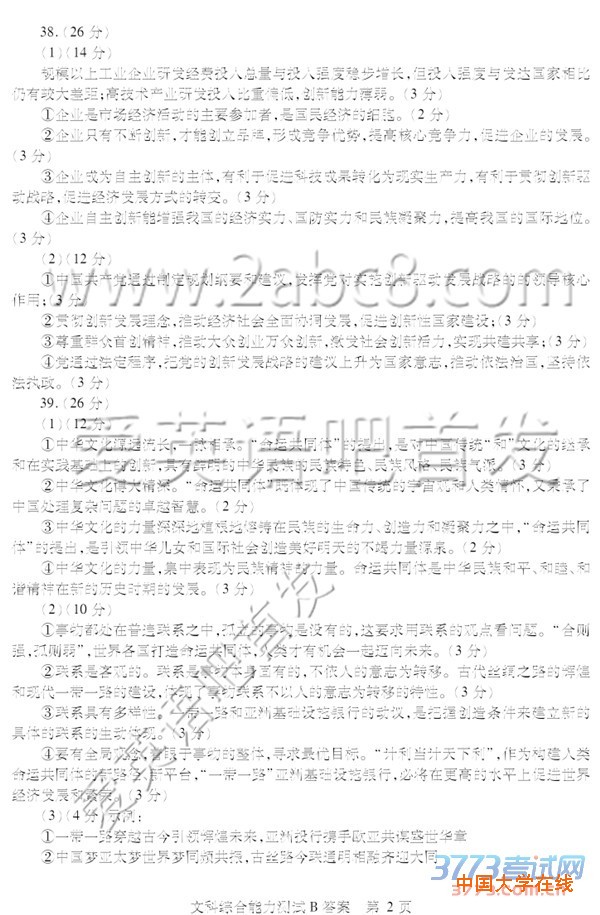 38.(26 分)
(1)(14 分)
规模以上工业企业研发经费投入总量与投入强度稳步增长,但投入强度与发达国家相比
仍有较大差距;高技术产业研发投入比重偏低,创新能力薄弱。(3 分)
①企业是市场经济活动的主要参加者,是国民经济的细胞。(2 分)
②企业只有不断创新,才能创立品牌,形成竞争优势,提高核心竞争力,促进企业的发展。
(3 分)
③企业成为自主创新的主体,有利于促进科技成果转化为现实生产力,有利于贯彻创新驱
动战略,促进经济发展方式的转变。(3 分)
④企业自主创新能增强我国的经济实力、国防实力和民族凝聚力,提高我国的国际地位。
(3 分)
(2)(12 分)
①中国共产党通过制定规划纲要和建议,发挥党对实施创新驱动发展战略的的领导核心
作用;(3 分)
②贯彻创新发展理念,推动经济社会全面协调发展,促进创新性国家建设;(3 分)
③尊重群众首创精神,推动大众创业万众创新,激发社会创新活力,实现共建共享;(3 分)
④党通过法定程序,把党的创新发展战略的建议上升为国家意志,推动依法治国,坚持依
法执政。(3 分)
www.2abc8.com
39.(26 分)
(1)(12 分)
①中华文化源远流长,一脉相承。“命运共同体”的提出,是对中国传统“和”文化的继承
和在实践基础上的创新,具有鲜明的中华民族的民族特色、民族风格、民族气派。(3 分)
爱英语吧首发
②中华文化博大精深。“命运共同体”既体现了中国传统的宇宙观和人类情怀,又秉承了
中国处理复杂问题的卓越智慧。(3 分)
③中华文化的力量深深地植根地熔铸在民族的生命力、创造力和凝聚力之中,“命运共同
体”的提出,是引领中华儿女和国际社会创造美好明天的不竭力量源泉。(2 分)
④中华文化的力量,集中表现为民族精神的力量。命运共同体是中华民族和平、和睦、和
谐精神在新的历史时期的发展。(3 分)
(2)(10 分)
①事物都处在普遍联系之中,孤立的事物是没有的,这要求用联系的观点看问题。“合则
强,孤则弱”,世界各国打造命运共同体,人类才有机会一起迈向未来。(3 分)
②联系是客观的。联系是事物本身固有的,不依人的意志为转移。古代丝绸之路的辉煌
和现代一带一路的建设,体现了事物联系不以人的意志为转移的特性。(3 分)
③联系具有多样性。一带一路和亚洲基础设施银行的动议,是把握创造条件来建立新的
具体的联系的生动体现。(3 分)
④要有全局观念,着眼于事物的整体,寻求最优目标。“计利当计天下利”,作为构建人类
命运共同体的新路径、新平台,“一带一路”亚洲基础设施银行,必将在更高的水平上促进世界
经济发展和繁荣。(3 分)
(3)(4 分)示例:
①一带一路穿越古今引领辉煌未来,亚洲投行携手欧亚共谋盛世华章
②中国梦亚太梦世界梦同频共振,古丝路今联通明相融齐迎大同
3773考试网
中国大学在线
文科综合能力测试 B 答案 第 2 页